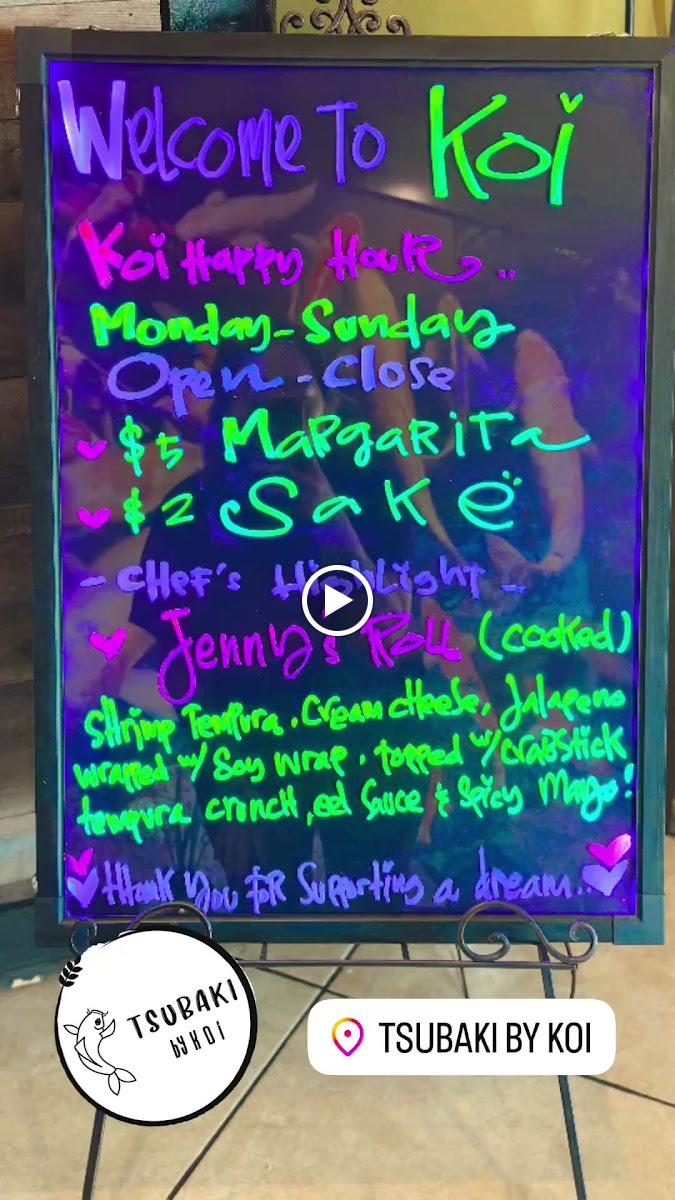 Welcome To Koi
Koi Happy Hour..
Monday-Sunday
Open-Close
$5 Margarita
$2 Sake
- Chef's Highlight -
Jenny's Roll (cooked)
Shrimp Tempura, Cream cheese, Jalapeno
wrapped w/ Soy wrap, topped w/ crabstick
tempura crunch, eel Sauce & Spicy Mayo!
thank you for supporting a dream...
TSUBAKI
by KOI
TSUBAKI BY KOI